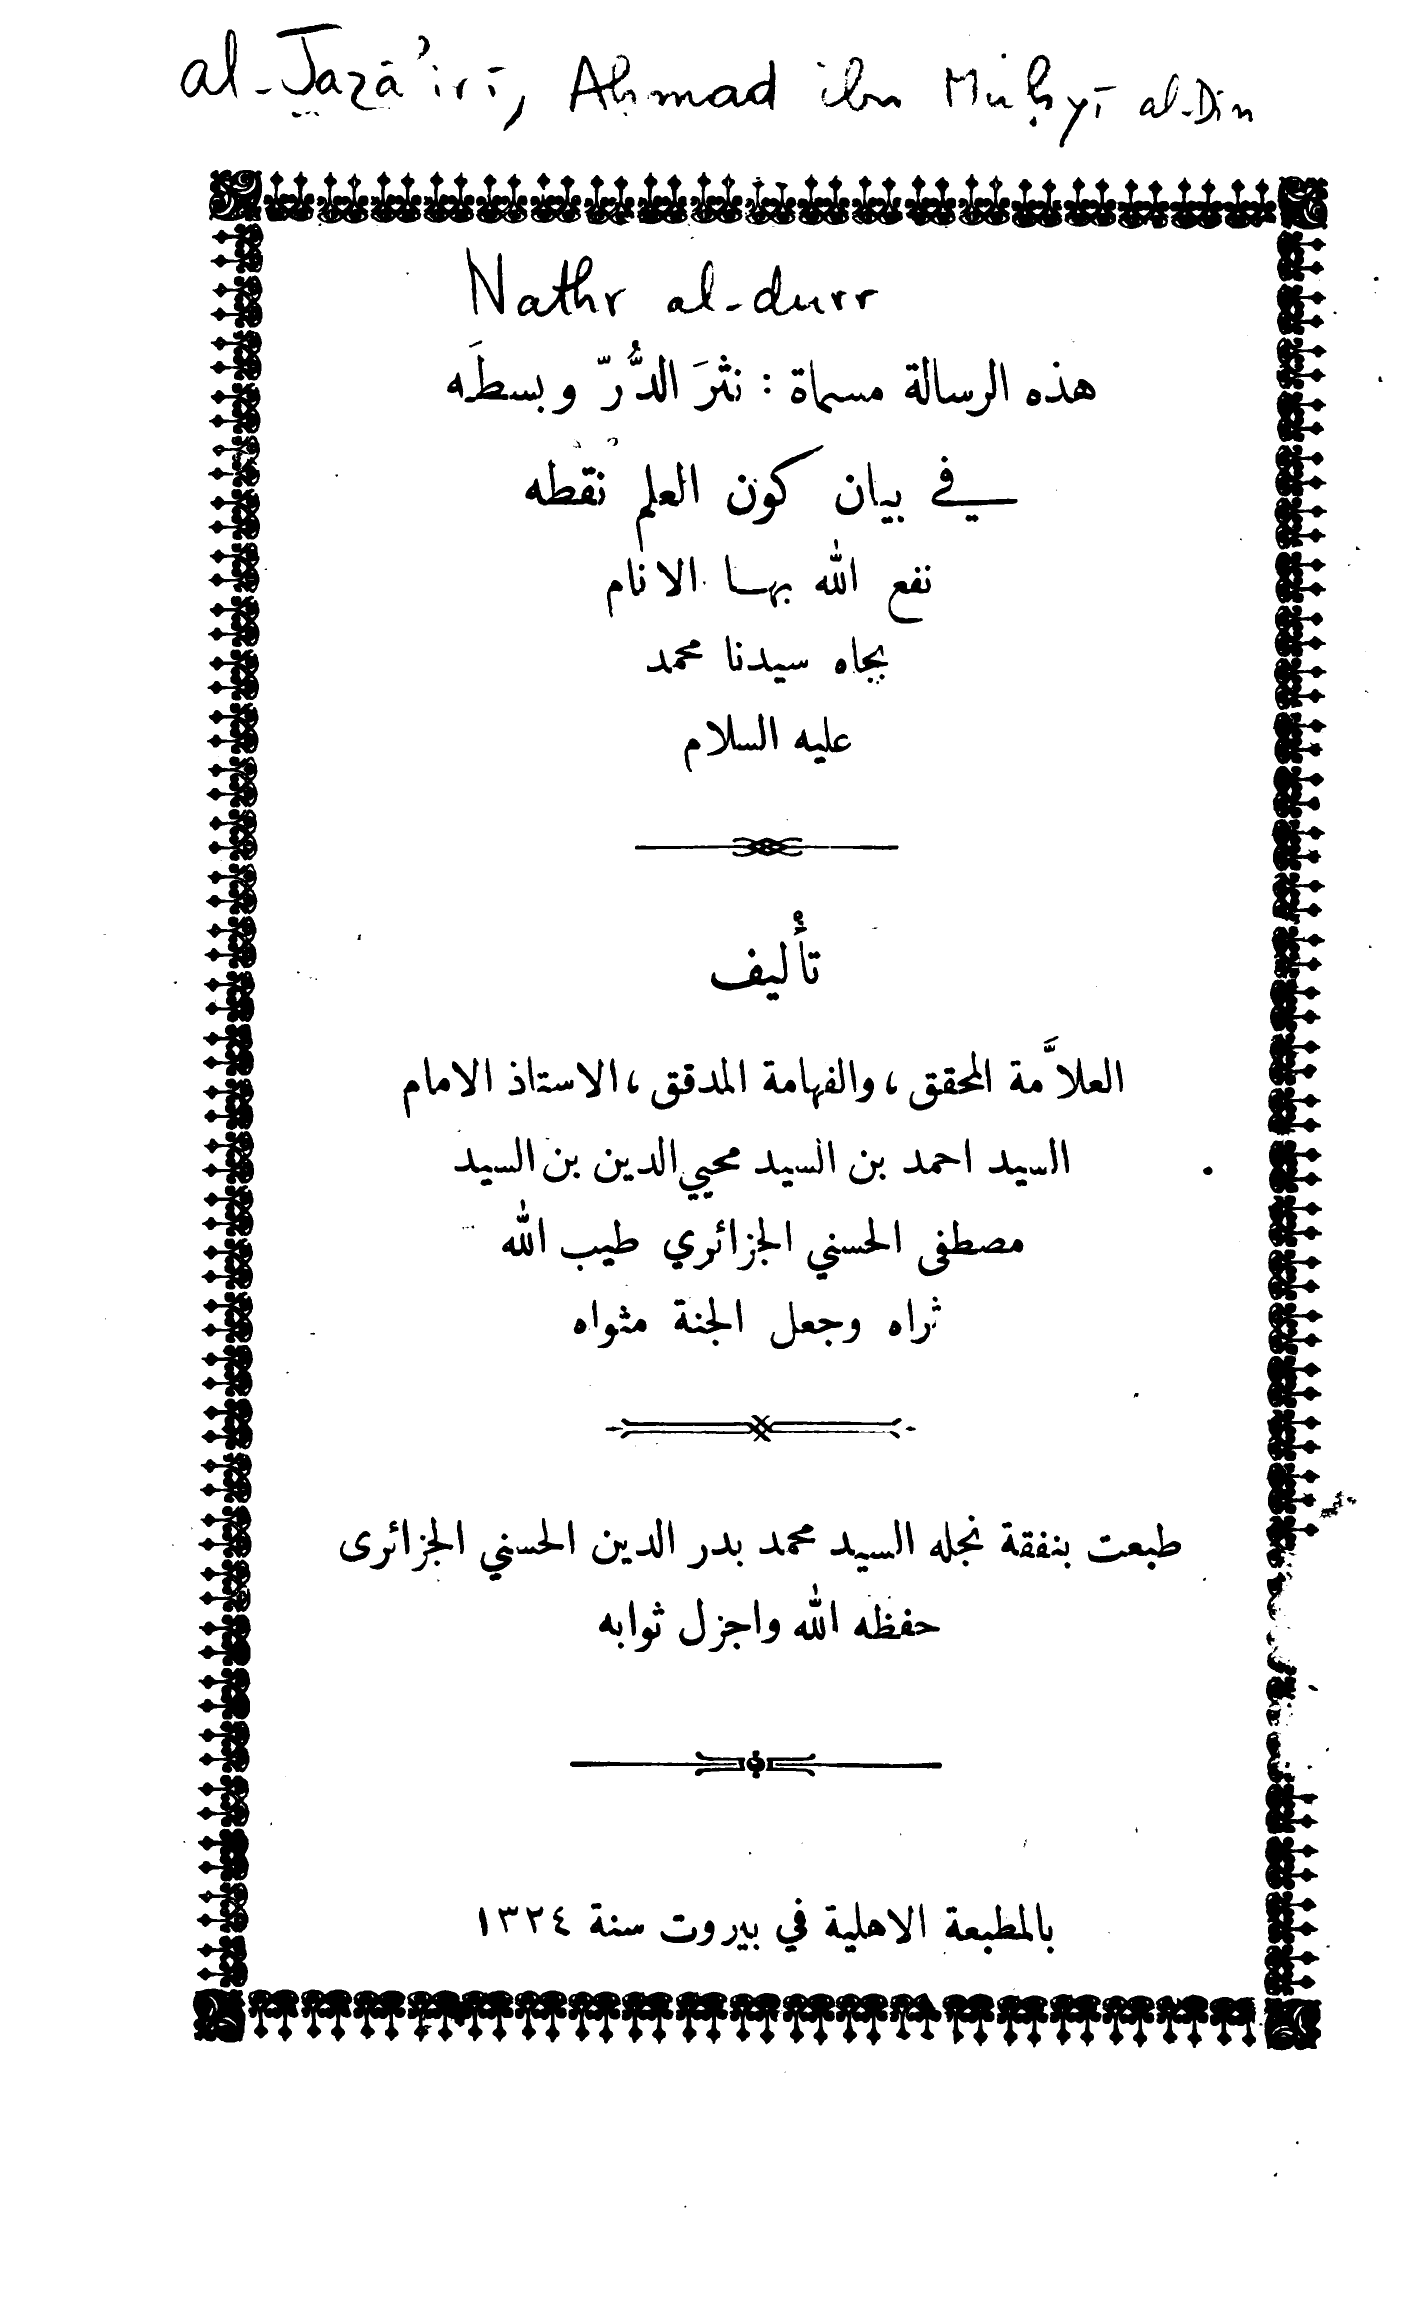 al-Jazā'irī, Aḥmad ibn Muḥyī al-Din
Nathr al-durr
هذه الرسالة مسماة : نثرَ الدُّرّ وبسطَه
في بيان كون العلم نقطه
نفع الله بها الانام
بجاه سيدنا محمد
عليه السلام
تأليف
العلاَّمة المحقق ، والفهامة المدقق ، الاستاذ الامام
السيد احمد بن السيد محيي الدين بن السيد
مصطفى الحسني الجزائري طيب الله
ثراه وجعل الجنة مثواه
طبعت بنفقة نجله السيد محمد بدر الدين الحسني الجزائرى
حفظه الله واجزل ثوابه
بالمطبعة الاهلية في بيروت سنة ١٣٢٤